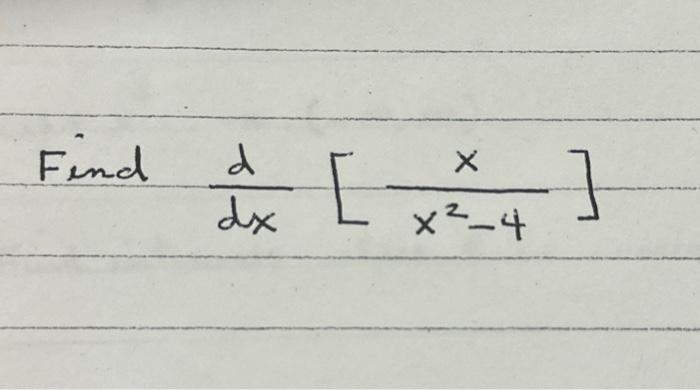 Find d/dx [ x/(x²-4) ]